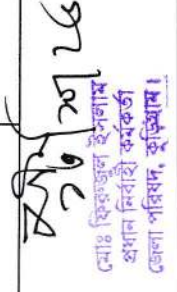 মোঃ ফিরুজুল ইসলাম
প্রধান নির্বাহী কর্মকর্তা
জেলা পরিষদ, কুড়িগ্রাম।